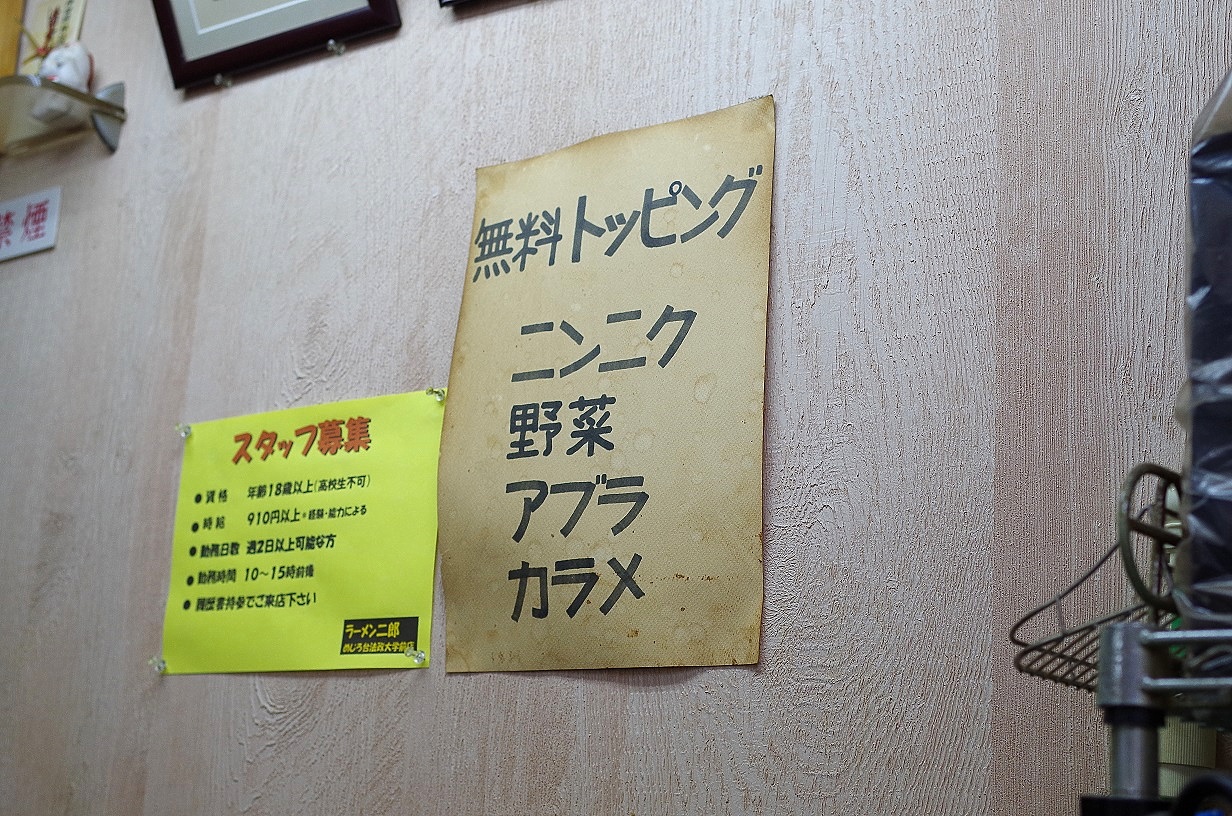 禁煙
無料トッピング
ニンニク
野菜
アブラ
カラメ
スタッフ募集
●資格 年齢18歳以上(高校生不可)
●時給 910円以上※経験・能力による
●勤務日数 週2日以上可能な方
●勤務時間 10～15時前後
●履歴書持参でご来店下さい
ラーメン二郎
めじろ台法政大学前店